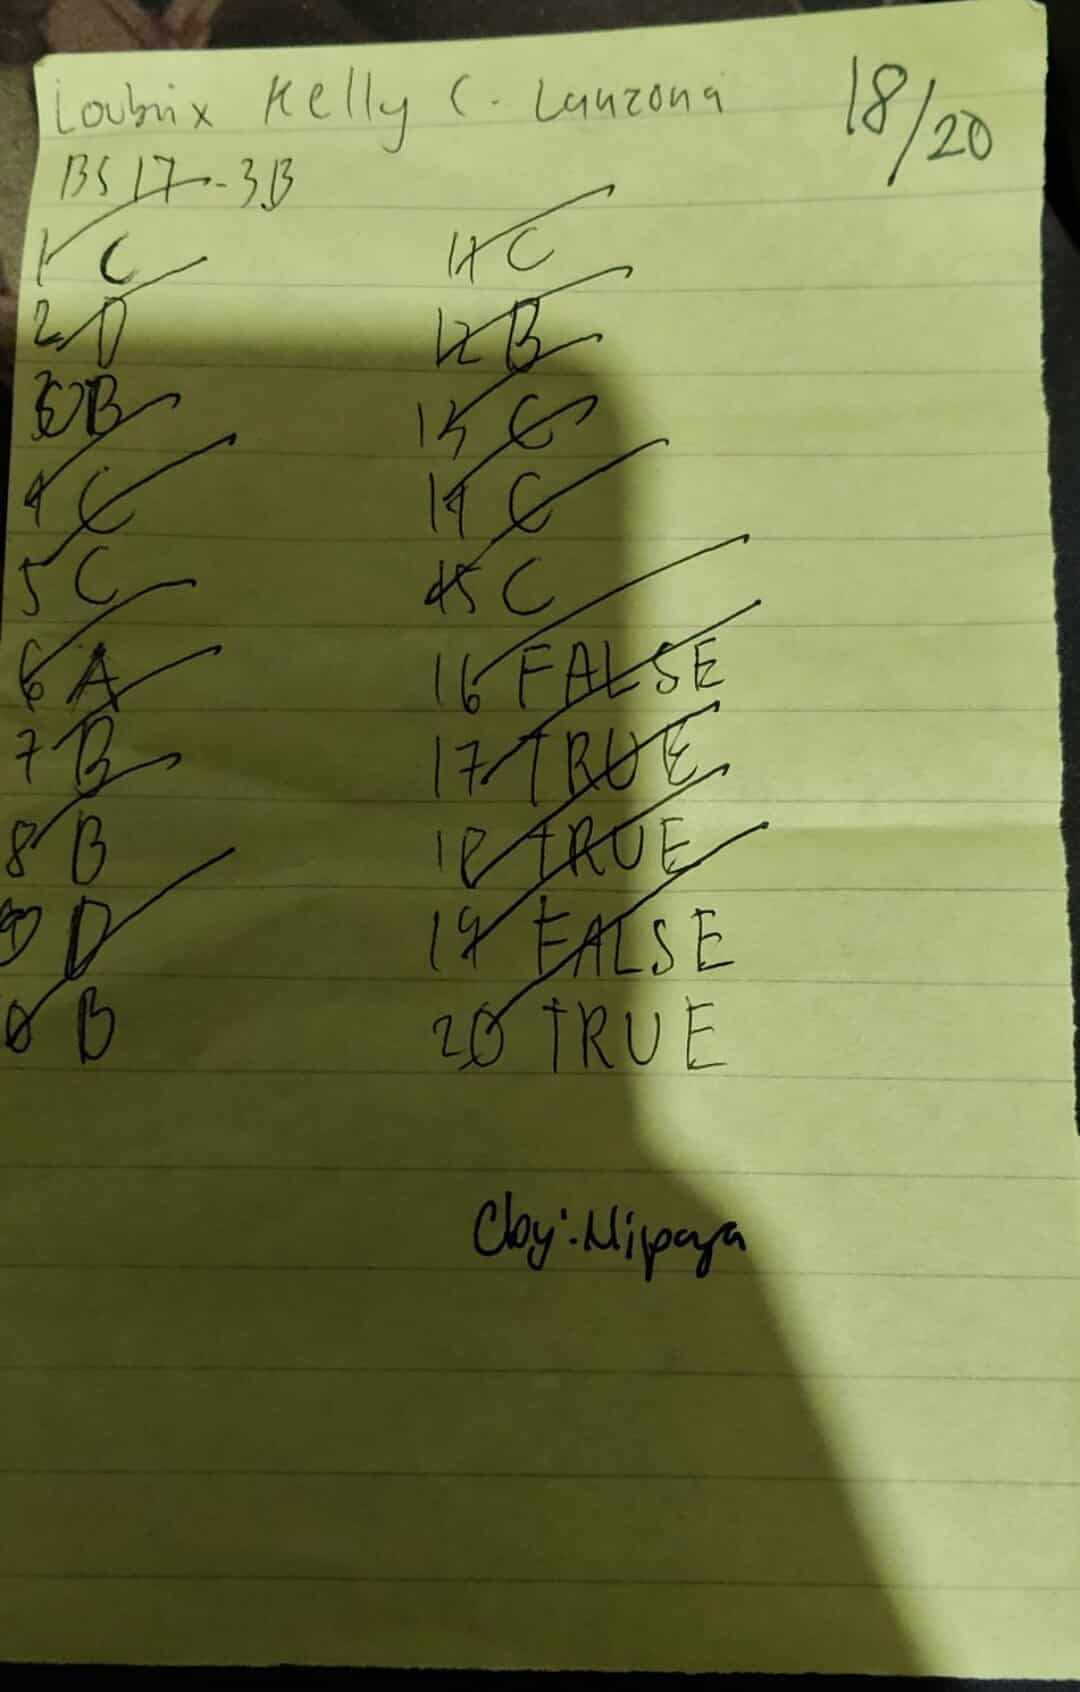 Loubrix Kelly C. Lanzona
18/20
BS17-3B
1 C
2 D
3 B
4 C
5 C
6 A
7 B
8 B
9 D
10 B
11 C
12 B
13 C
14 C
15 C
16 FALSE
17 TRUE
18 TRUE
19 FALSE
20 TRUE
Cby: Nipaya